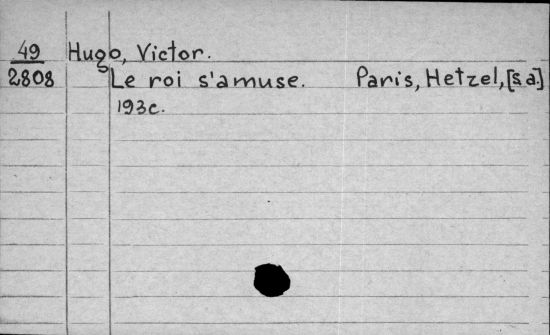 49 Hugo, Victor.
2808 Le roi s'amuse. Paris, Hetzel, [s.a.]
193c.